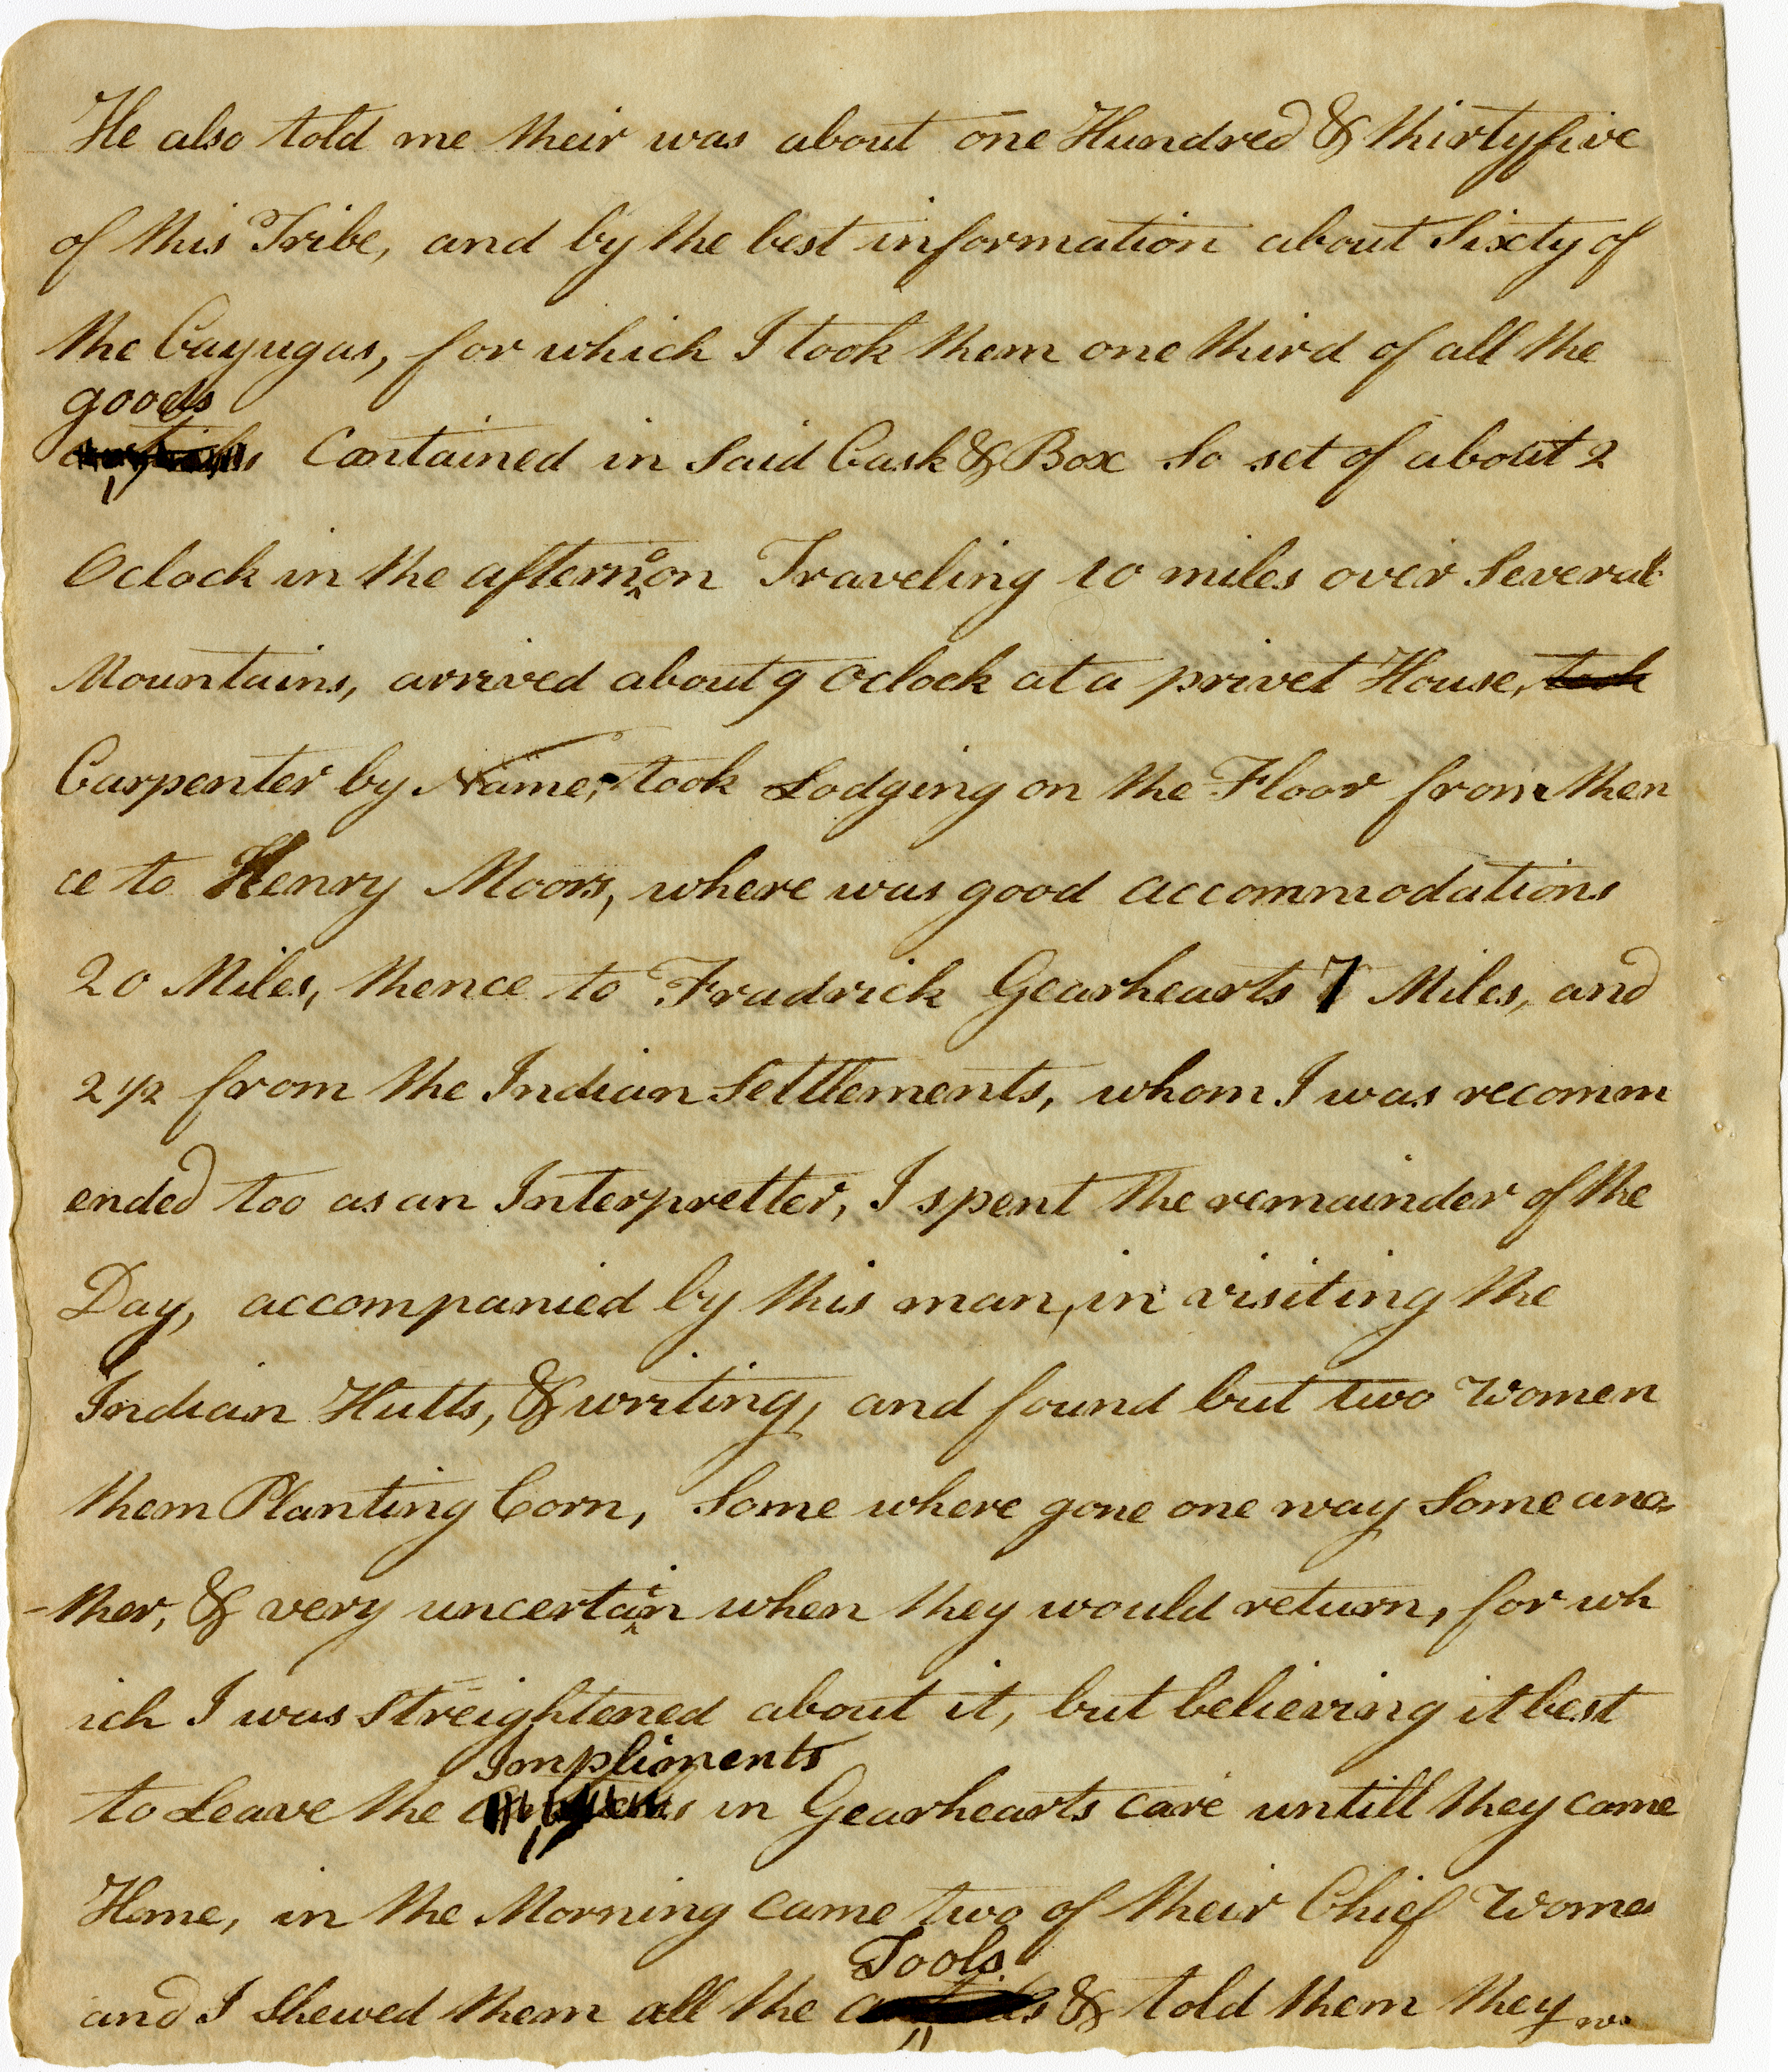 He also told me their was about one Hundred & thirtyfive
of this Tribe, and by the best information about Sixty of
the Cayugas, for which I took them one third of all the
goods
Contained in Said Cask & Box So set of about 2
Oclock in the afternoon Traveling 10 miles over Several
Mountains, arrived about 9 Oclock at a privet House, took
Carpenter by Name, took Lodging on the Floor from then
ce to Henry Moors, where was good accommodations
20 Miles, thence to Fradrick Gearhearts 7 Miles, and
2 1/2 from the Indian Settlements, whom I was recomm
ended too as an Interpretter, I spent the remainder of the
Day, accompanied by this man, in visiting the
Indian Hutts, & writing, and found but two Women
them Planting Corn, Some where gone one way Some ano=
-ther, & very uncertain when they would return, for wh
ich I was Streightened about it, but believing it best
Impliments
to Leave the in Gearhearts care untill they came
Home, in the Morning came two of their Chief Women
Tools
and I Shewed them all the & told them they